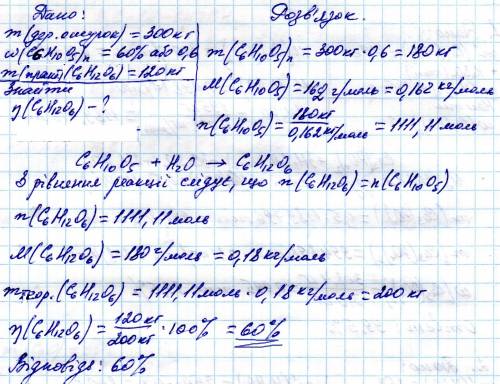 Дано:
m(дер. ошурок) = 300 кг
ω(C6H10O5)n = 60% або 0,6
m(практ)(C6H12O6) = 120 кг
Знайти
η(C6H12O6) – ?
Розв'язок.
m(C6H10O5)n = 300 кг · 0,6 = 180 кг
M(C6H10O5) = 162 г/моль = 0,162 кг/моль
n(C6H10O5) = 180 кг / 0,162 кг/моль = 1111,11 моль
C6H10O5 + H2O → C6H12O6
З рівняння реакції слідує, що n(C6H12O6) = n(C6H10O5)
n(C6H12O6) = 1111,11 моль
M(C6H12O6) = 180 г/моль = 0,18 кг/моль
mтеор.(C6H12O6) = 1111,11 моль · 0,18 кг/моль = 200 кг
η(C6H12O6) = 120 кг / 200 кг · 100% = 60%
Відповідь: 60%